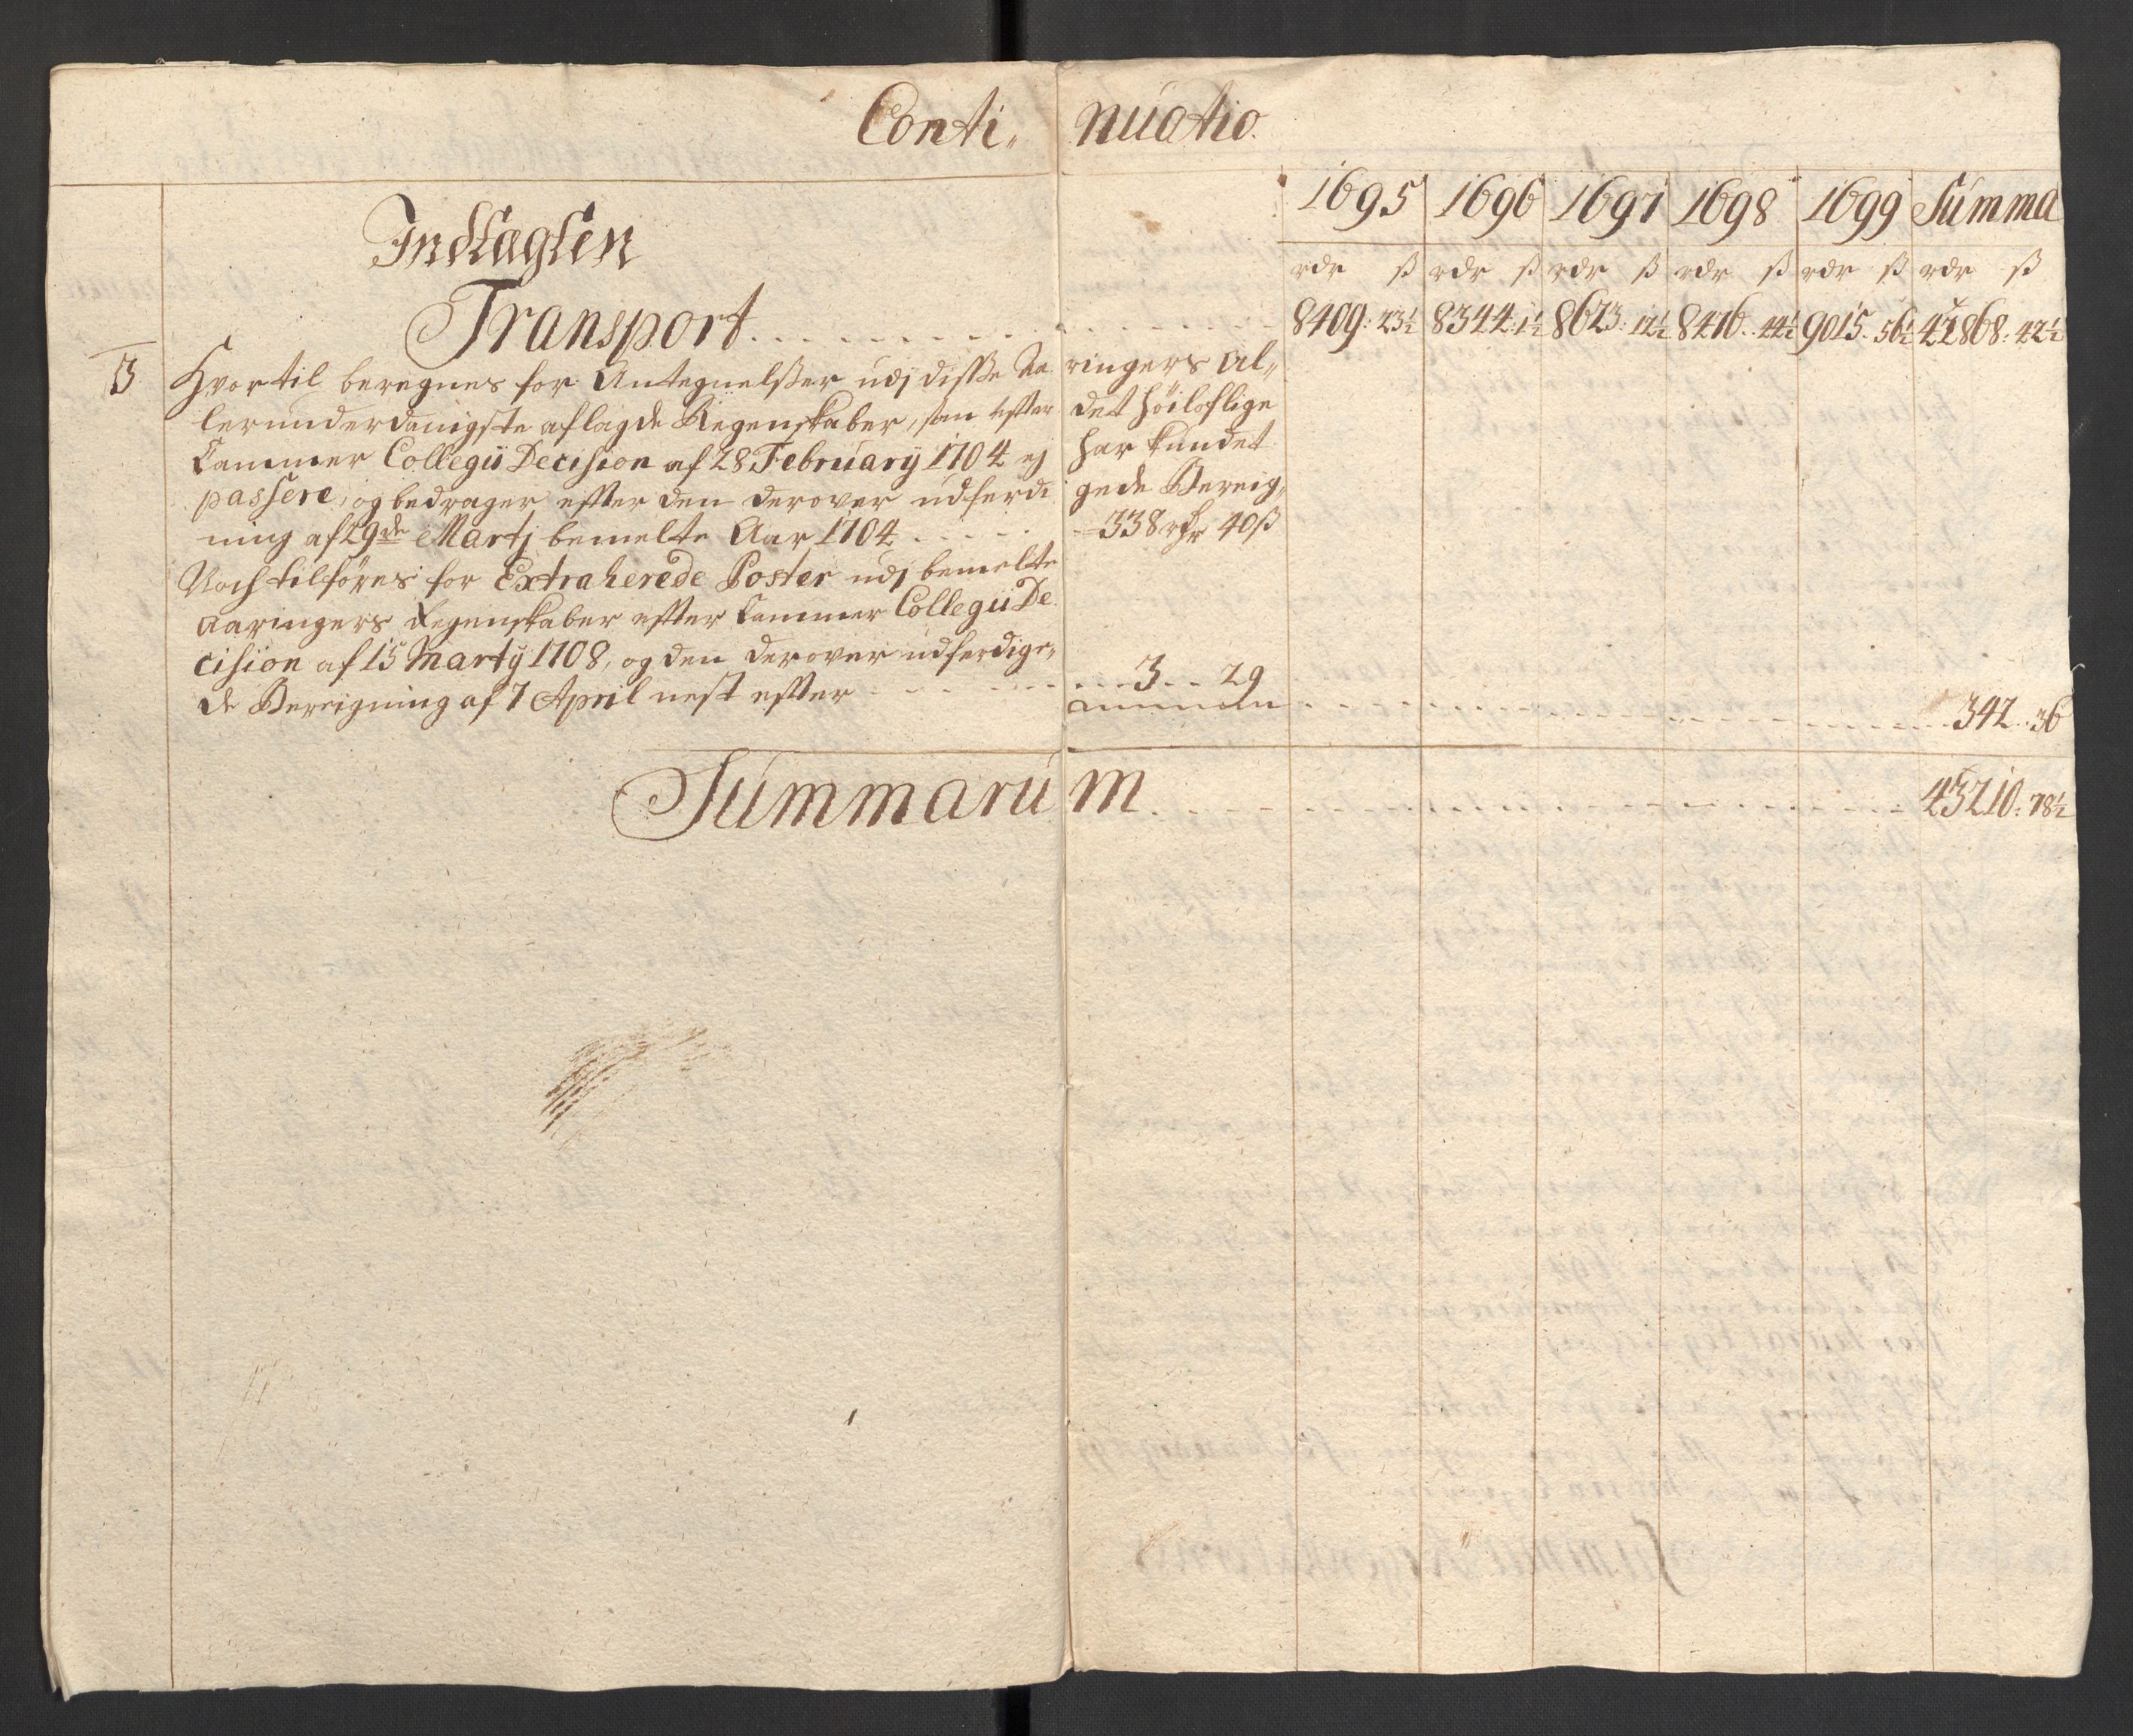 Conti„ nuatio.
1695 1696 1697 1698 1699 Summa
Indtægten
rdr ß rdr ß rdr ß rdr ß rdr ß rdr ß
Transport . . . . . . . . . 8409: 23½ 8344: 1½ 8623: 12½ 8476: 44½ 9015: 56½ 42868: 42½
3 Hvortil beregnes for Antegnelßer udj disse Aa ringers Al„
lerunderdanigste aflagde Regenskaber, som efter det höiloflige
Cammer Collegii Decision af 28 February 1704 ej har kundet
passere, og bedrager efter den derover udferdi gede Bereig„
ning af 29de Martj bemelte Aar 1704 . . . . . 338 rdr 40ß
Noch tilföres for Extraherede Poster udj bemelte
Aaringers Regenskaber efter Cammer Collegii De
cision af 15 Martij 1708, og den derover udferdige„
de Bereigning af 7 April nest efter . . . . . 3 . . 29
342 . . 36
Summaru m . . . . . 43210: 78½